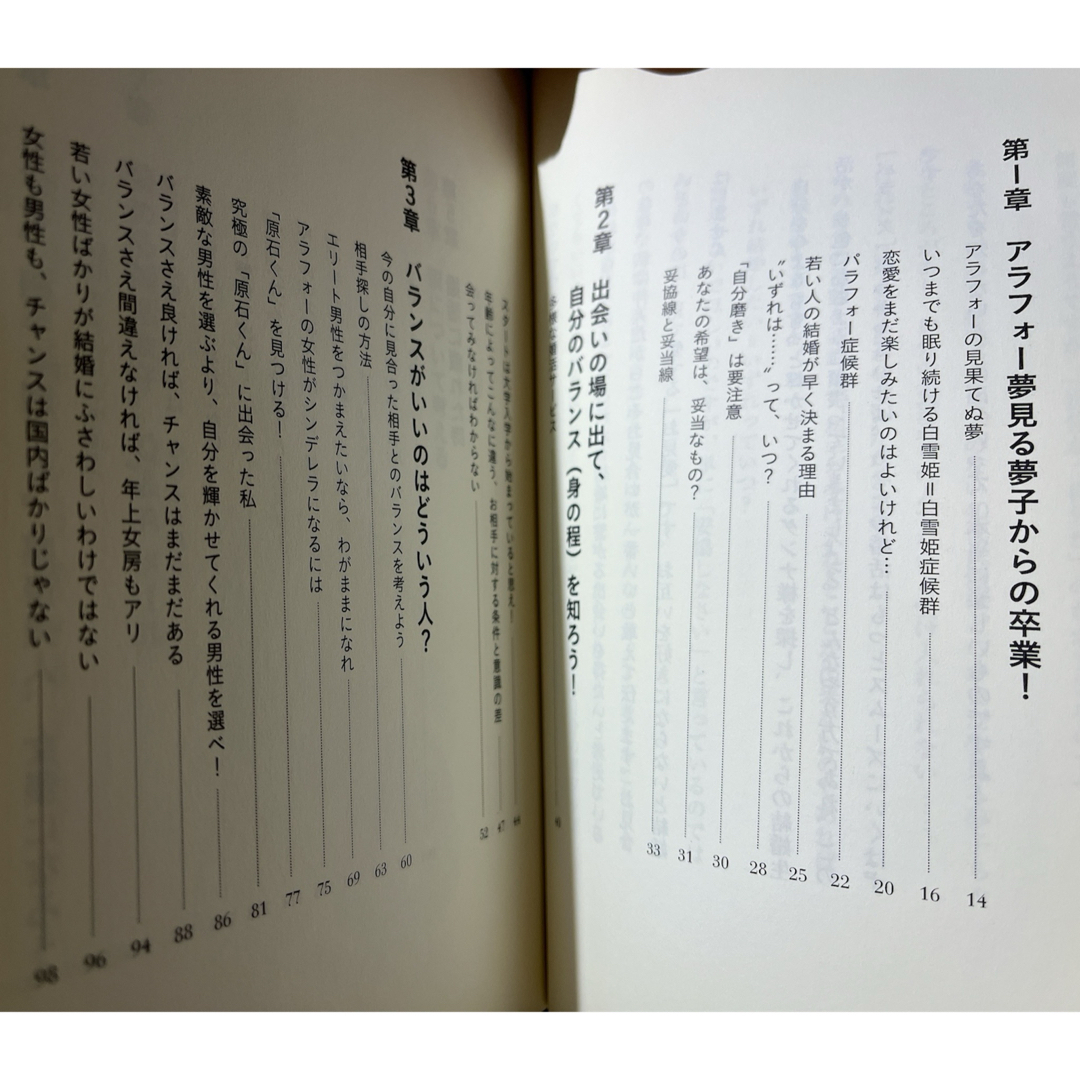 第1章 アラフォー夢見る夢子からの卒業！
アラフォーの見果てぬ夢 14
いつまでも眠り続ける白雪姫＝白雪姫症候群 16
恋愛をまだ楽しみたいのはよいけれど… 20
パラフォー症候群 22
若い人の結婚が早く決まる理由 25
〝いずれは……〟って、いつ？ 28
「自分磨き」は要注意 30
あなたの希望は、妥当なもの？ 31
妥協線と妥当線 33
第2章 出会いの場に出て、
自分のバランス（身の程）を知ろう！
スタートは大学入学から始まっていると思え！ 44
年齢によってこんなに違う、お相手に対する条件と意識の差 47
会ってみなければわからない 52
第3章 バランスがいいのはどういう人？
今の自分に見合った相手とのバランスを考えよう 60
相手探しの方法 63
エリート男性をつかまえたいなら、わがままになれ 69
アラフォーの女性がシンデレラになるには 75
「原石くん」を見つける！ 77
究極の「原石くん」に出会った私 81
素敵な男性を選ぶより、自分を輝かせてくれる男性を選べ！ 86
バランスさえ良ければ、チャンスはまだまだある 88
バランスさえ間違えなければ、年上女房もアリ 94
若い女性ばかりが結婚にふさわしいわけではない 96
女性も男性も、チャンスは国内ばかりじゃない 98